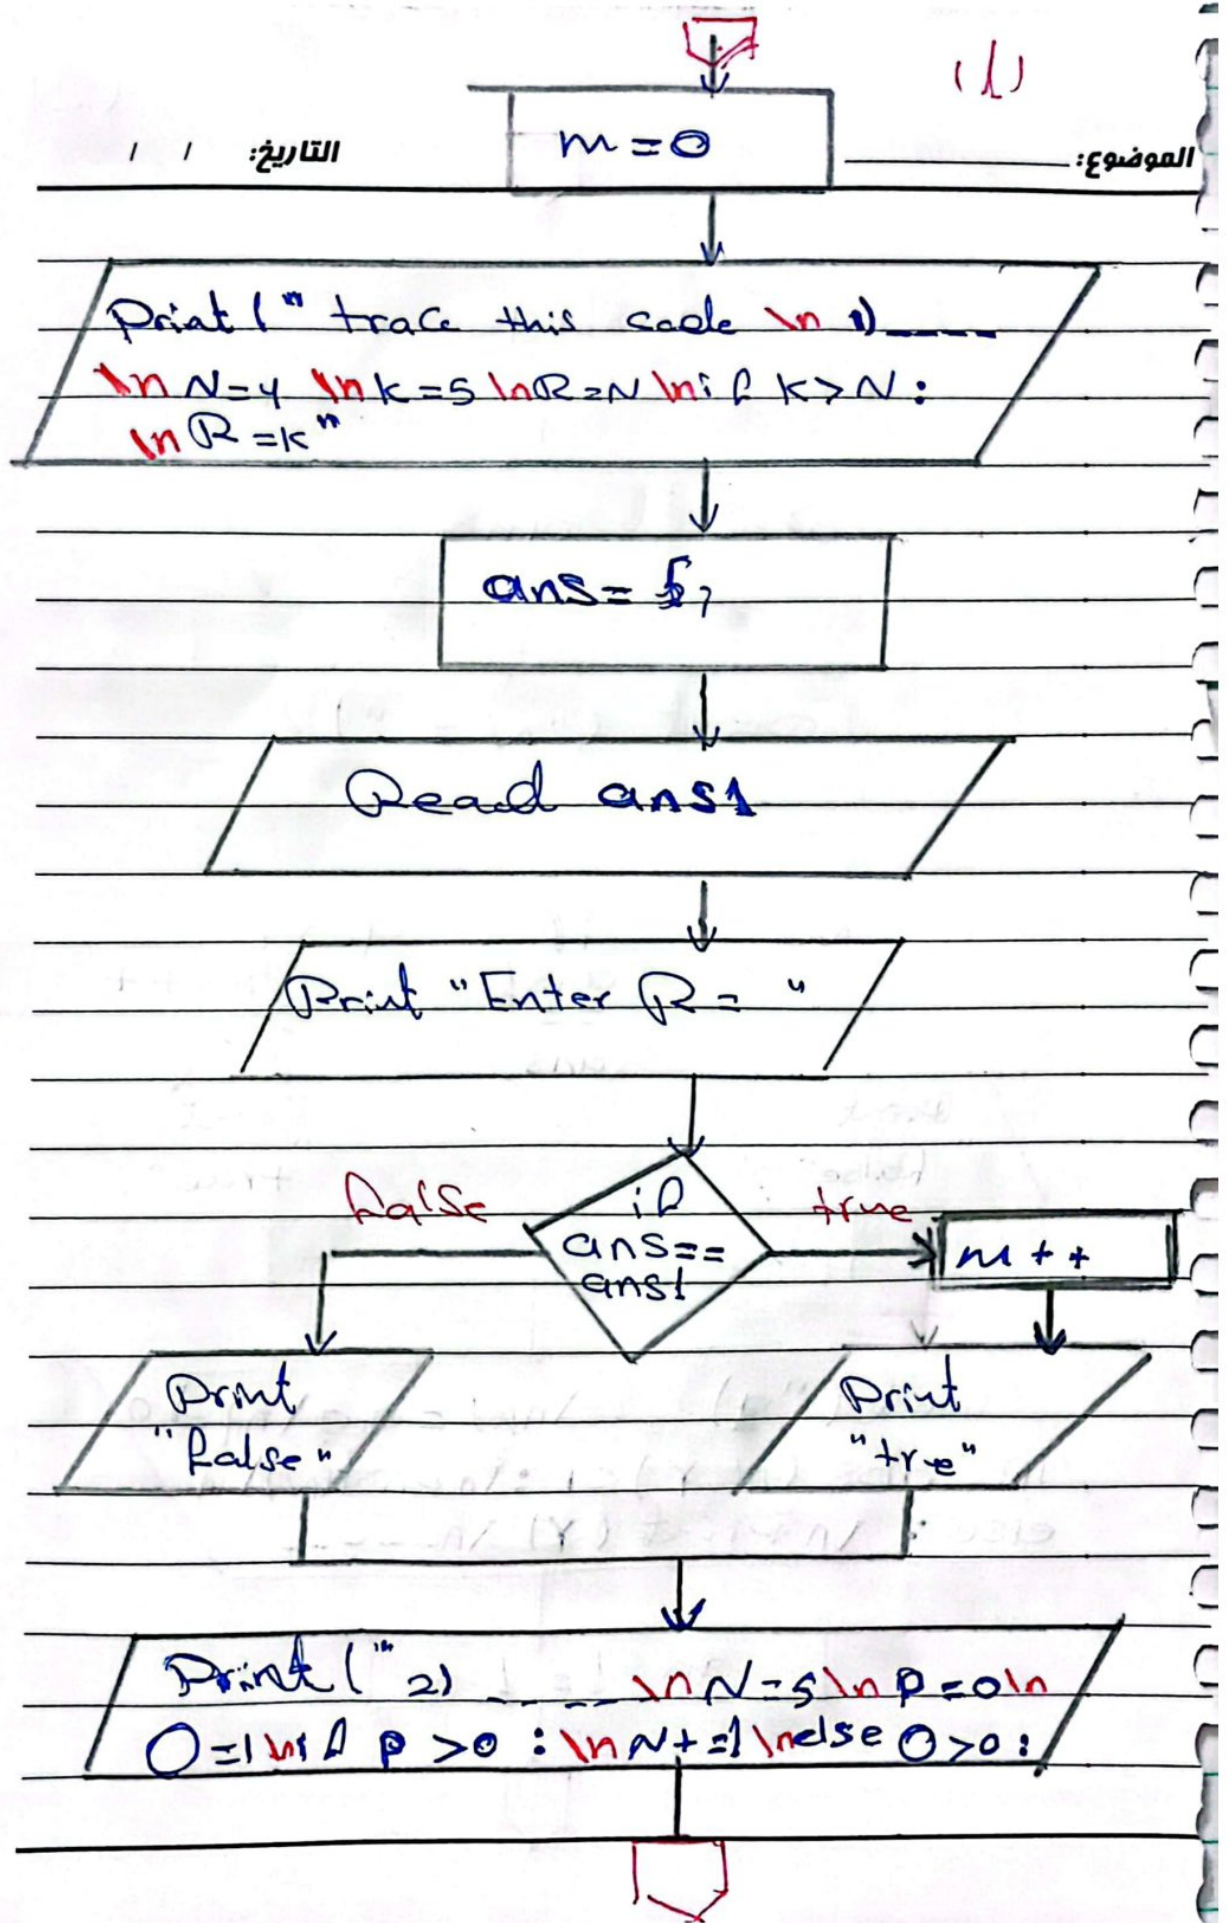 (1)
m = 0
الموضوع:
التاريخ: / /
Print (" trace this code \n 1)_____
\n N=4 \n k=5 \n R=N \n if k>N:
\n R=k"
ans=
Read ans1
Print "Enter R = "
false
if
true
ans==
ans1
m++
Print
"false"
Print
"tre"
Print (" 2) _____ \n N=5 \n P=0 \n
O=1 \n if P >0 : \n N+=1 \n else O>0: